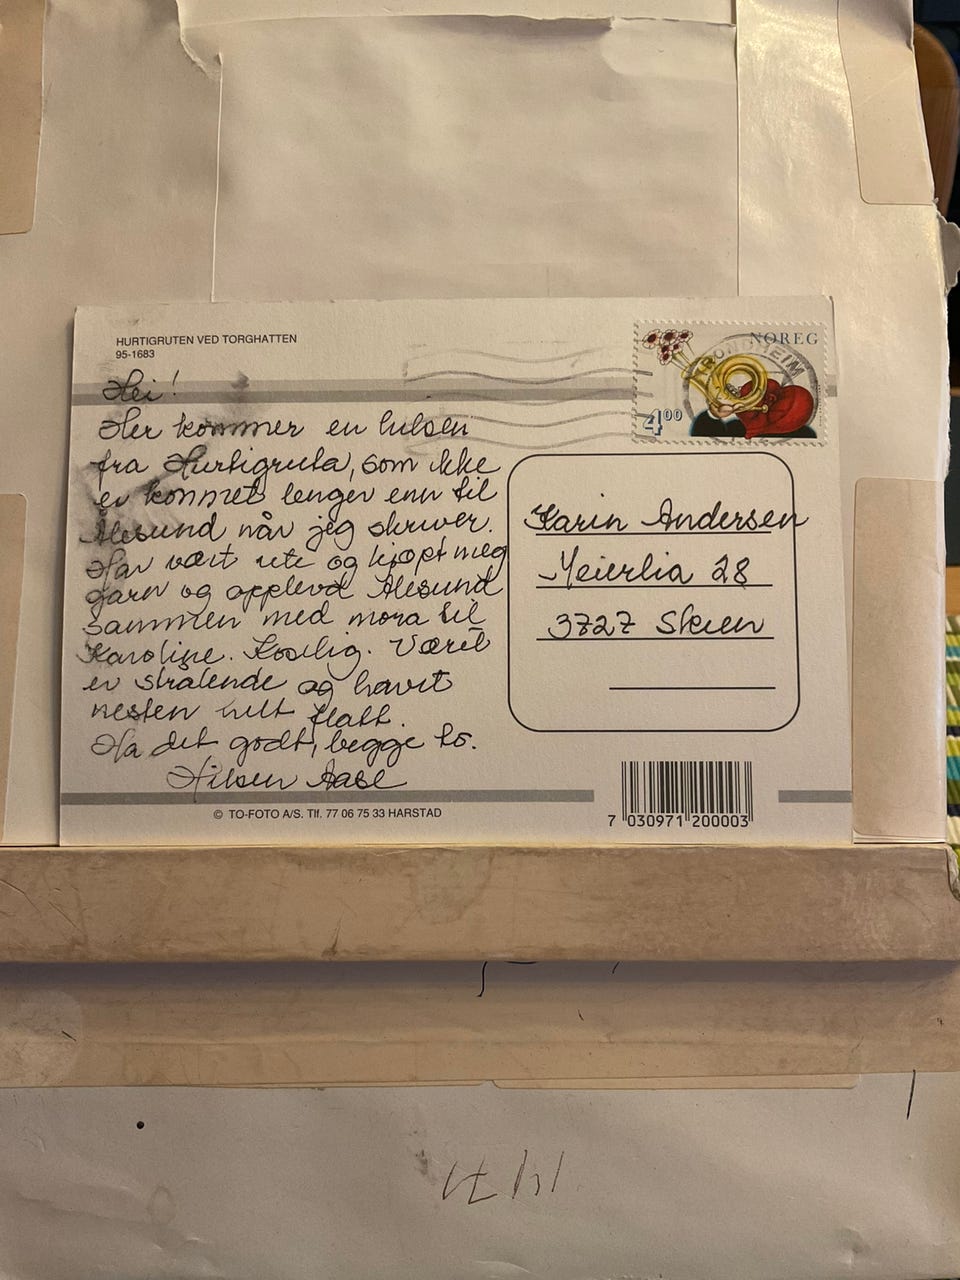 HURTIGRUTEN VED TORGHATTEN
95-1683
NOREG
TRONDHEIM
4⁰⁰
Hei!
Her kommer en hilsen
fra Hurtigruta, som ikke
er kommet lenger enn til
Ålesund når jeg skriver.
Har vært ute og kjøpt meg
garn og opplevd Ålesund
sammen med mora til
Karoline. Koselig. Været
er strålende og havet
nesten helt flatt.
Ha det godt, begge to.
Hilsen Aase
Karin Andersen
Meierlia 28
3727 Skien
© TO-FOTO A/S. Tlf. 77 06 75 33 HARSTAD
7 030971 200003